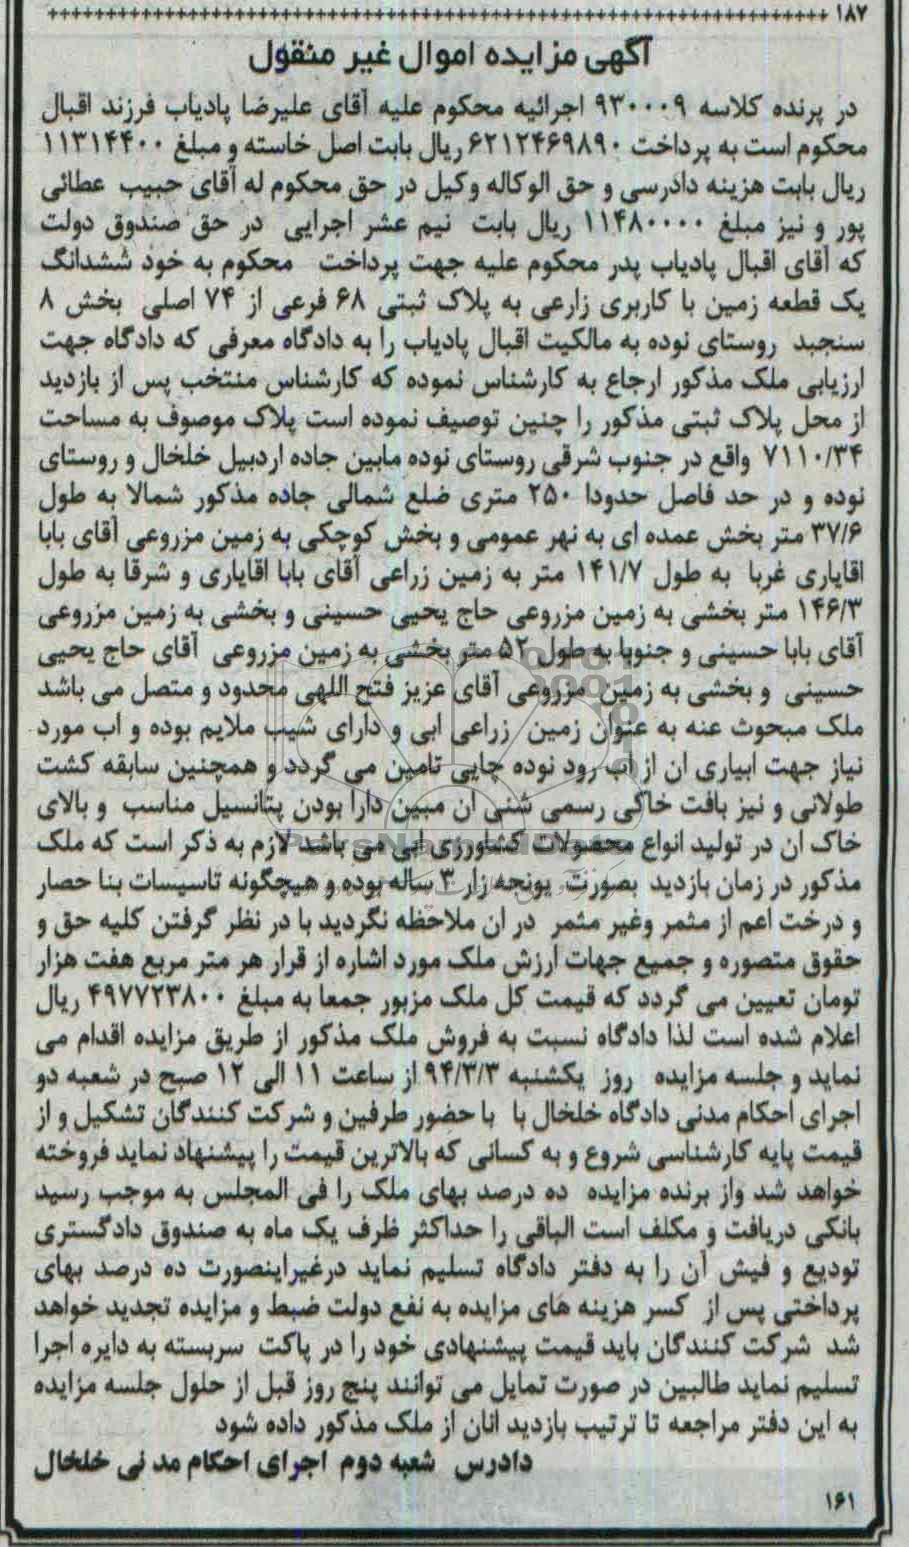 ۱۸۷
آگهی مزایده اموال غیر منقول
در پرنده کلاسه ۹۳۰۰۰۹ اجرائیه محکوم علیه آقای علیرضا پادیاب فرزند اقبال
محکوم است به پرداخت ۶۲۱۲۴۶۹۸۹۰ ریال بابت اصل خاسته و مبلغ ۱۱۳۱۴۴۰۰
ریال بابت هزینه دادرسی و حق الوکاله وکیل در حق محکوم له آقای حبیب عطائی
پور و نیز مبلغ ۱۱۴۸۰۰۰۰ ریال بابت نیم عشر اجرایی در حق صندوق دولت
که آقای اقبال پادیاب پدر محکوم علیه جهت پرداخت محکوم به خود ششدانگ
یک قطعه زمین با کاربری زارعی به پلاک ثبتی ۶۸ فرعی از ۷۴ اصلی بخش ۸
سنجبد روستای نوده به مالکیت اقبال پادیاب را به دادگاه معرفی که دادگاه جهت
ارزیابی ملک مذکور ارجاع به کارشناس نموده که کارشناس منتخب پس از بازدید
از محل پلاک ثبتی مذکور را چنین توصیف نموده است پلاک موصوف به مساحت
۷۱۱۰/۳۴ واقع در جنوب شرقی روستای نوده مابین جاده اردبیل خلخال و روستای
نوده و در حد فاصل حدودا ۲۵۰ متری ضلع شمالی جاده مذکور شمالا به طول
۳۷/۶ متر بخش عمده ای به نهر عمومی و بخش کوچکی به زمین مزروعی آقای بابا
اقایاری غربا به طول ۱۴۱/۷ متر به زمین زراعی آقای بابا اقایاری و شرقا به طول
۱۴۶/۳ متر بخشی به زمین مزروعی حاج یحیی حسینی و بخشی به زمین مزروعی
آقای بابا حسینی و جنوبا به طول ۵۲ متر بخشی به زمین مزروعی آقای حاج یحیی
حسینی و بخشی به زمین مزروعی آقای عزیز فتح اللهی محدود و متصل می باشد
ملک مبحوث عنه به عنوان زمین زراعی ابی و دارای شیب ملایم بوده و اب مورد
نیاز جهت ابیاری ان از اب رود نوده چایی تامین می گردد و همچنین سابقه کشت
طولانی و نیز بافت خاکی رسمی شنی ان مبین دارا بودن پتانسیل مناسب و بالای
خاک ان در تولید انواع محصولات کشاورزی ابی می باشد لازم به ذکر است که ملک
مذکور در زمان بازدید بصورت یونجه زار ۳ ساله بوده و هیچگونه تاسیسات بنا حصار
و درخت اعم از مثمر وغیر مثمر در ان ملاحظه نگردید با در نظر گرفتن کلیه حق و
حقوق متصوره و جمیع جهات ارزش ملک مورد اشاره از قرار هر متر مربع هفت هزار
تومان تعیین می گردد که قیمت کل ملک مزبور جمعا به مبلغ ۴۹۷۷۲۳۸۰۰ ریال
اعلام شده است لذا دادگاه نسبت به فروش ملک مذکور از طریق مزایده اقدام می
نماید و جلسه مزایده روز یکشنبه ۹۴/۳/۳ از ساعت ۱۱ الی ۱۲ صبح در شعبه دو
اجرای احکام مدنی دادگاه خلخال با با حضور طرفین و شرکت کنندگان تشکیل و از
قیمت پایه کارشناسی شروع و به کسانی که بالاترین قیمت را پیشنهاد نماید فروخته
خواهد شد واز برنده مزایده ده درصد بهای ملک را فی المجلس به موجب رسید
بانکی دریافت و مکلف است الباقی را حداکثر ظرف یک ماه به صندوق دادگستری
تودیع و فیش آن را به دفتر دادگاه تسلیم نماید درغیراینصورت ده درصد بهای
پرداختی پس از کسر هزینه های مزایده به نفع دولت ضبط و مزایده تجدید خواهد
شد شرکت کنندگان باید قیمت پیشنهادی خود را در پاکت سربسته به دایره اجرا
تسلیم نماید طالبین در صورت تمایل می توانند پنج روز قبل از حلول جلسه مزایده
به این دفتر مراجعه تا ترتیب بازدید انان از ملک مذکور داده شود
دادرس شعبه دوم اجرای احکام مد نی خلخال
۱۶۱